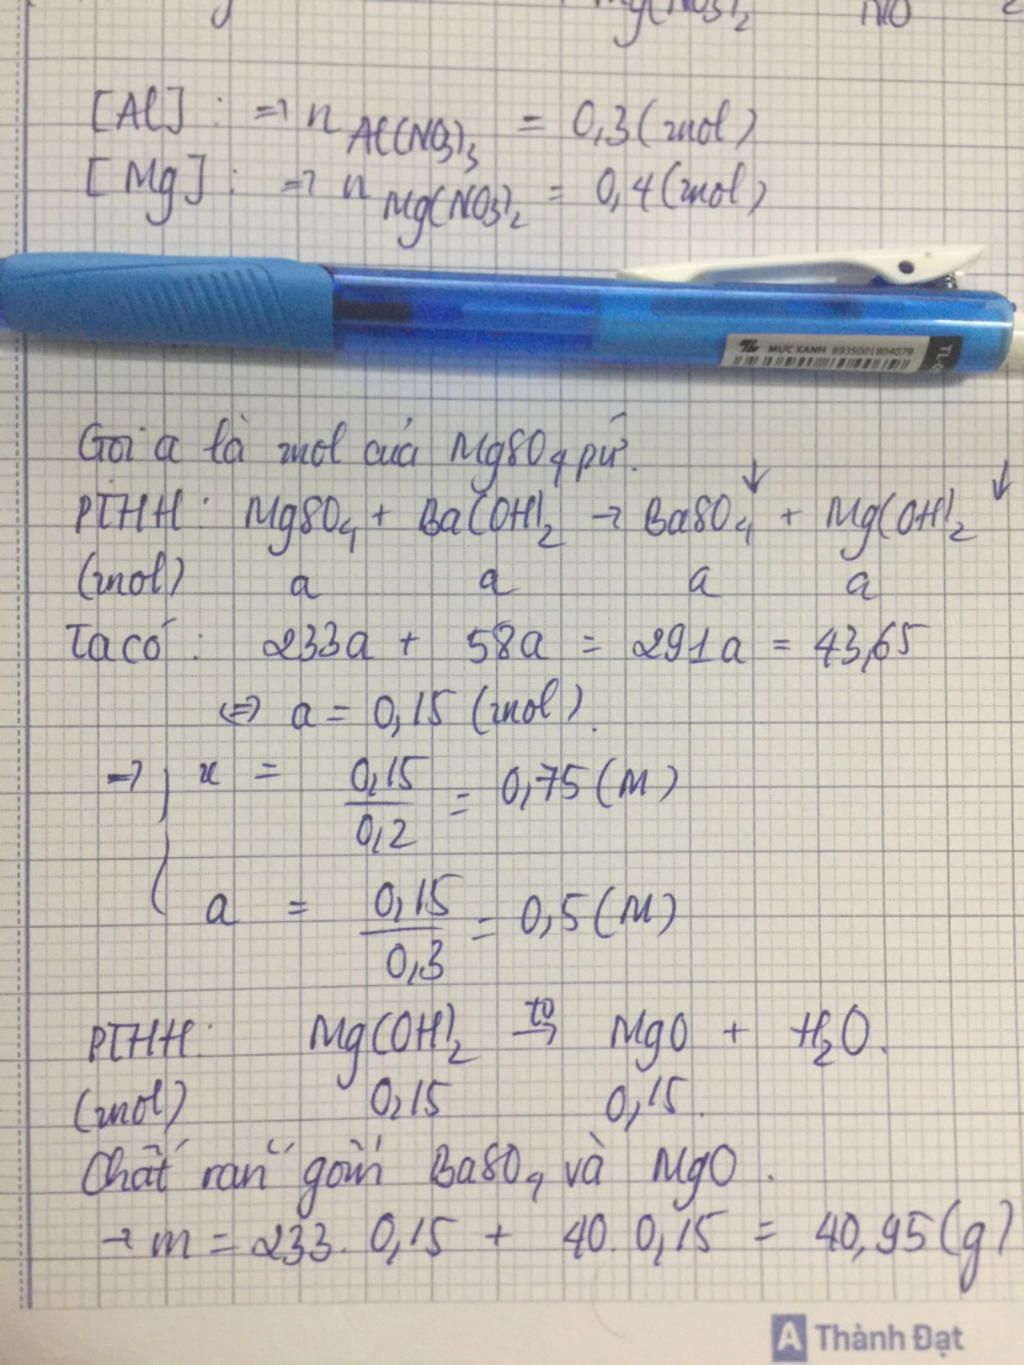 Mg(NO3)2 NO 2
[Al] : => n Al(NO3)3 = 0,3 (mol)
[Mg] : => n Mg(NO3)2 = 0,4 (mol)
MỰC XANH 8935001804079
TL-0
Gọi a là mol của MgSO4 pứ.
PTHH : MgSO4 + Ba(OH)2 → BaSO4↓ + Mg(OH)2↓
(mol) a a a a
Ta có : 233a + 58a = 291a = 43,65
<=> a = 0,15 (mol).
=> x = 0,15/0,2 = 0,75 (M)
a = 0,15/0,3 = 0,5 (M)
PTHH: Mg(OH)2 -to-> MgO + H2O.
(mol) 0,15 0,15.
Chất rắn gồm BaSO4 và MgO.
→ m = 233. 0,15 + 40. 0,15 = 40,95 (g)
A Thành Đạt